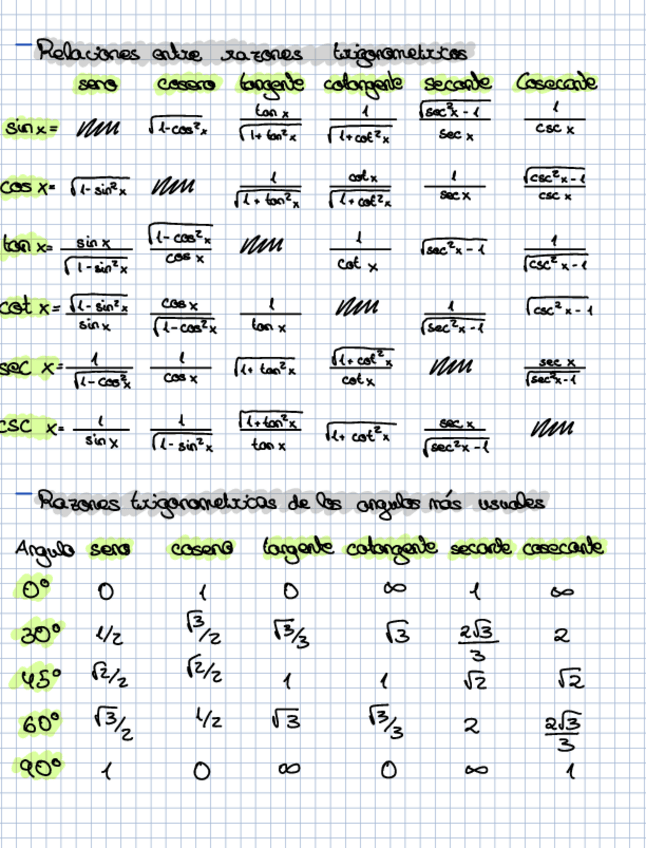 – Relaciones entre razones trigonometricas
seno coseno tangente cotangente secante cosecante
sin x = √(1-cos²x) tan x/√(1+tan²x) 1/√(1+cot²x) √(sec²x-1)/sec x 1/csc x
cos x = √(1-sin²x) 1/√(1+tan²x) cot x/√(1+cot²x) 1/sec x √(csc²x-1)/csc x
tan x = sin x/√(1-sin²x) √(1-cos²x)/cos x 1/cot x √(sec²x-1) 1/√(csc²x-1)
cot x = √(1-sin²x)/sin x cos x/√(1-cos²x) 1/tan x 1/√(sec²x-1) √(csc²x-1)
sec x = 1/√(1-cos²x) 1/cos x √(1+tan²x) √(1+cot²x)/cot x sec x/√(sec²x-1)
csc x = 1/sin x 1/√(1-sin²x) √(1+tan²x)/tan x √(1+cot²x) sec x/√(sec²x-1)
– Razones trigonometricas de los angulos más usuales
Angulo seno coseno tangente cotangente secante cosecante
0° 0 1 0 ∞ 1 ∞
30° 1/2 √3/2 √3/3 √3 2√3/3 2
45° √2/2 √2/2 1 1 √2 √2
60° √3/2 1/2 √3 √3/3 2 2√3/3
90° 1 0 ∞ 0 ∞ 1